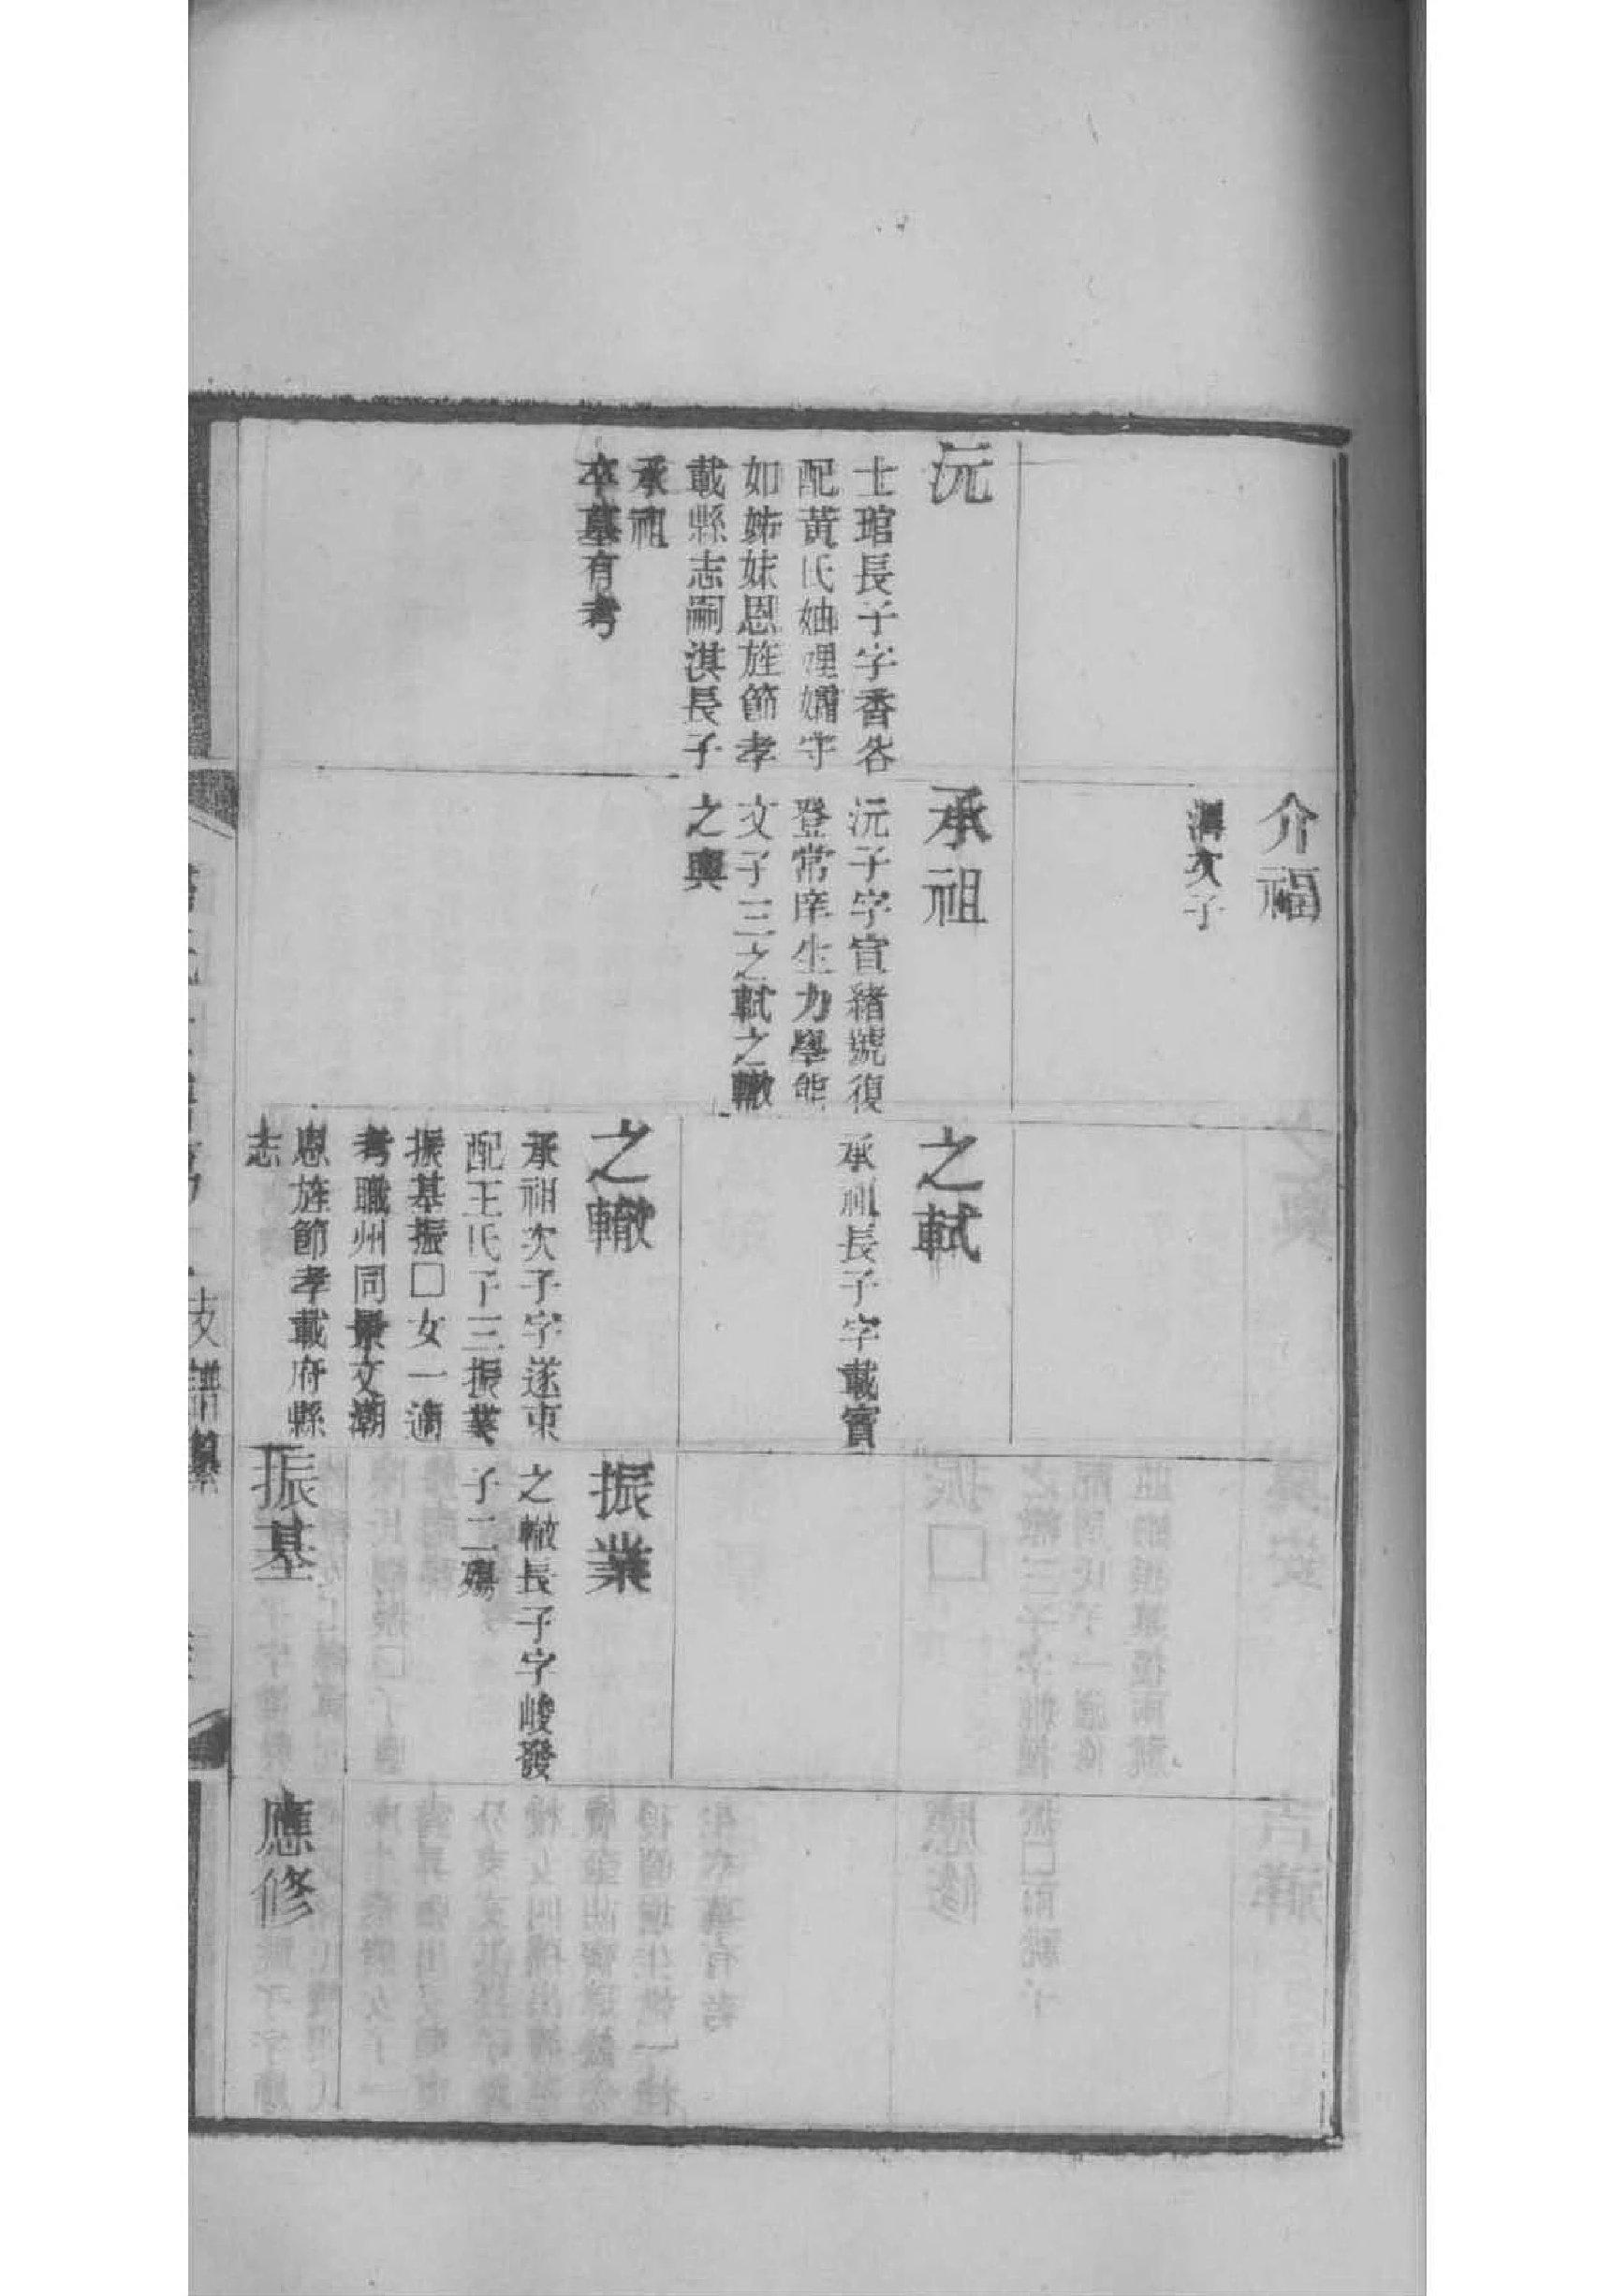 介福
次子
沅
士琯長子字香谷
配黃氏妯娌孀守
如姊妹恩旌節孝
載縣志嗣淇長子
承祖
卒墓有考
承祖
沅子字宜緒號復
登常庠生力學能
文子三之軾之轍
之輿
之軾
承祖長子字載賓
之轍
承祖次子字遂東
配王氏子三振業
振基振□女一適
考職州同景文潮
恩旌節孝載府縣
志
振業
之轍長子字峻發
子二殤
振基
應修
支譜纂